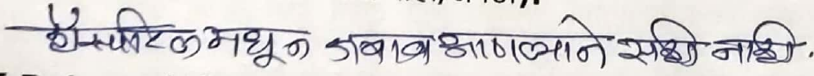 हॉस्पीटल मधून जबाब आणल्याने सही नाही.